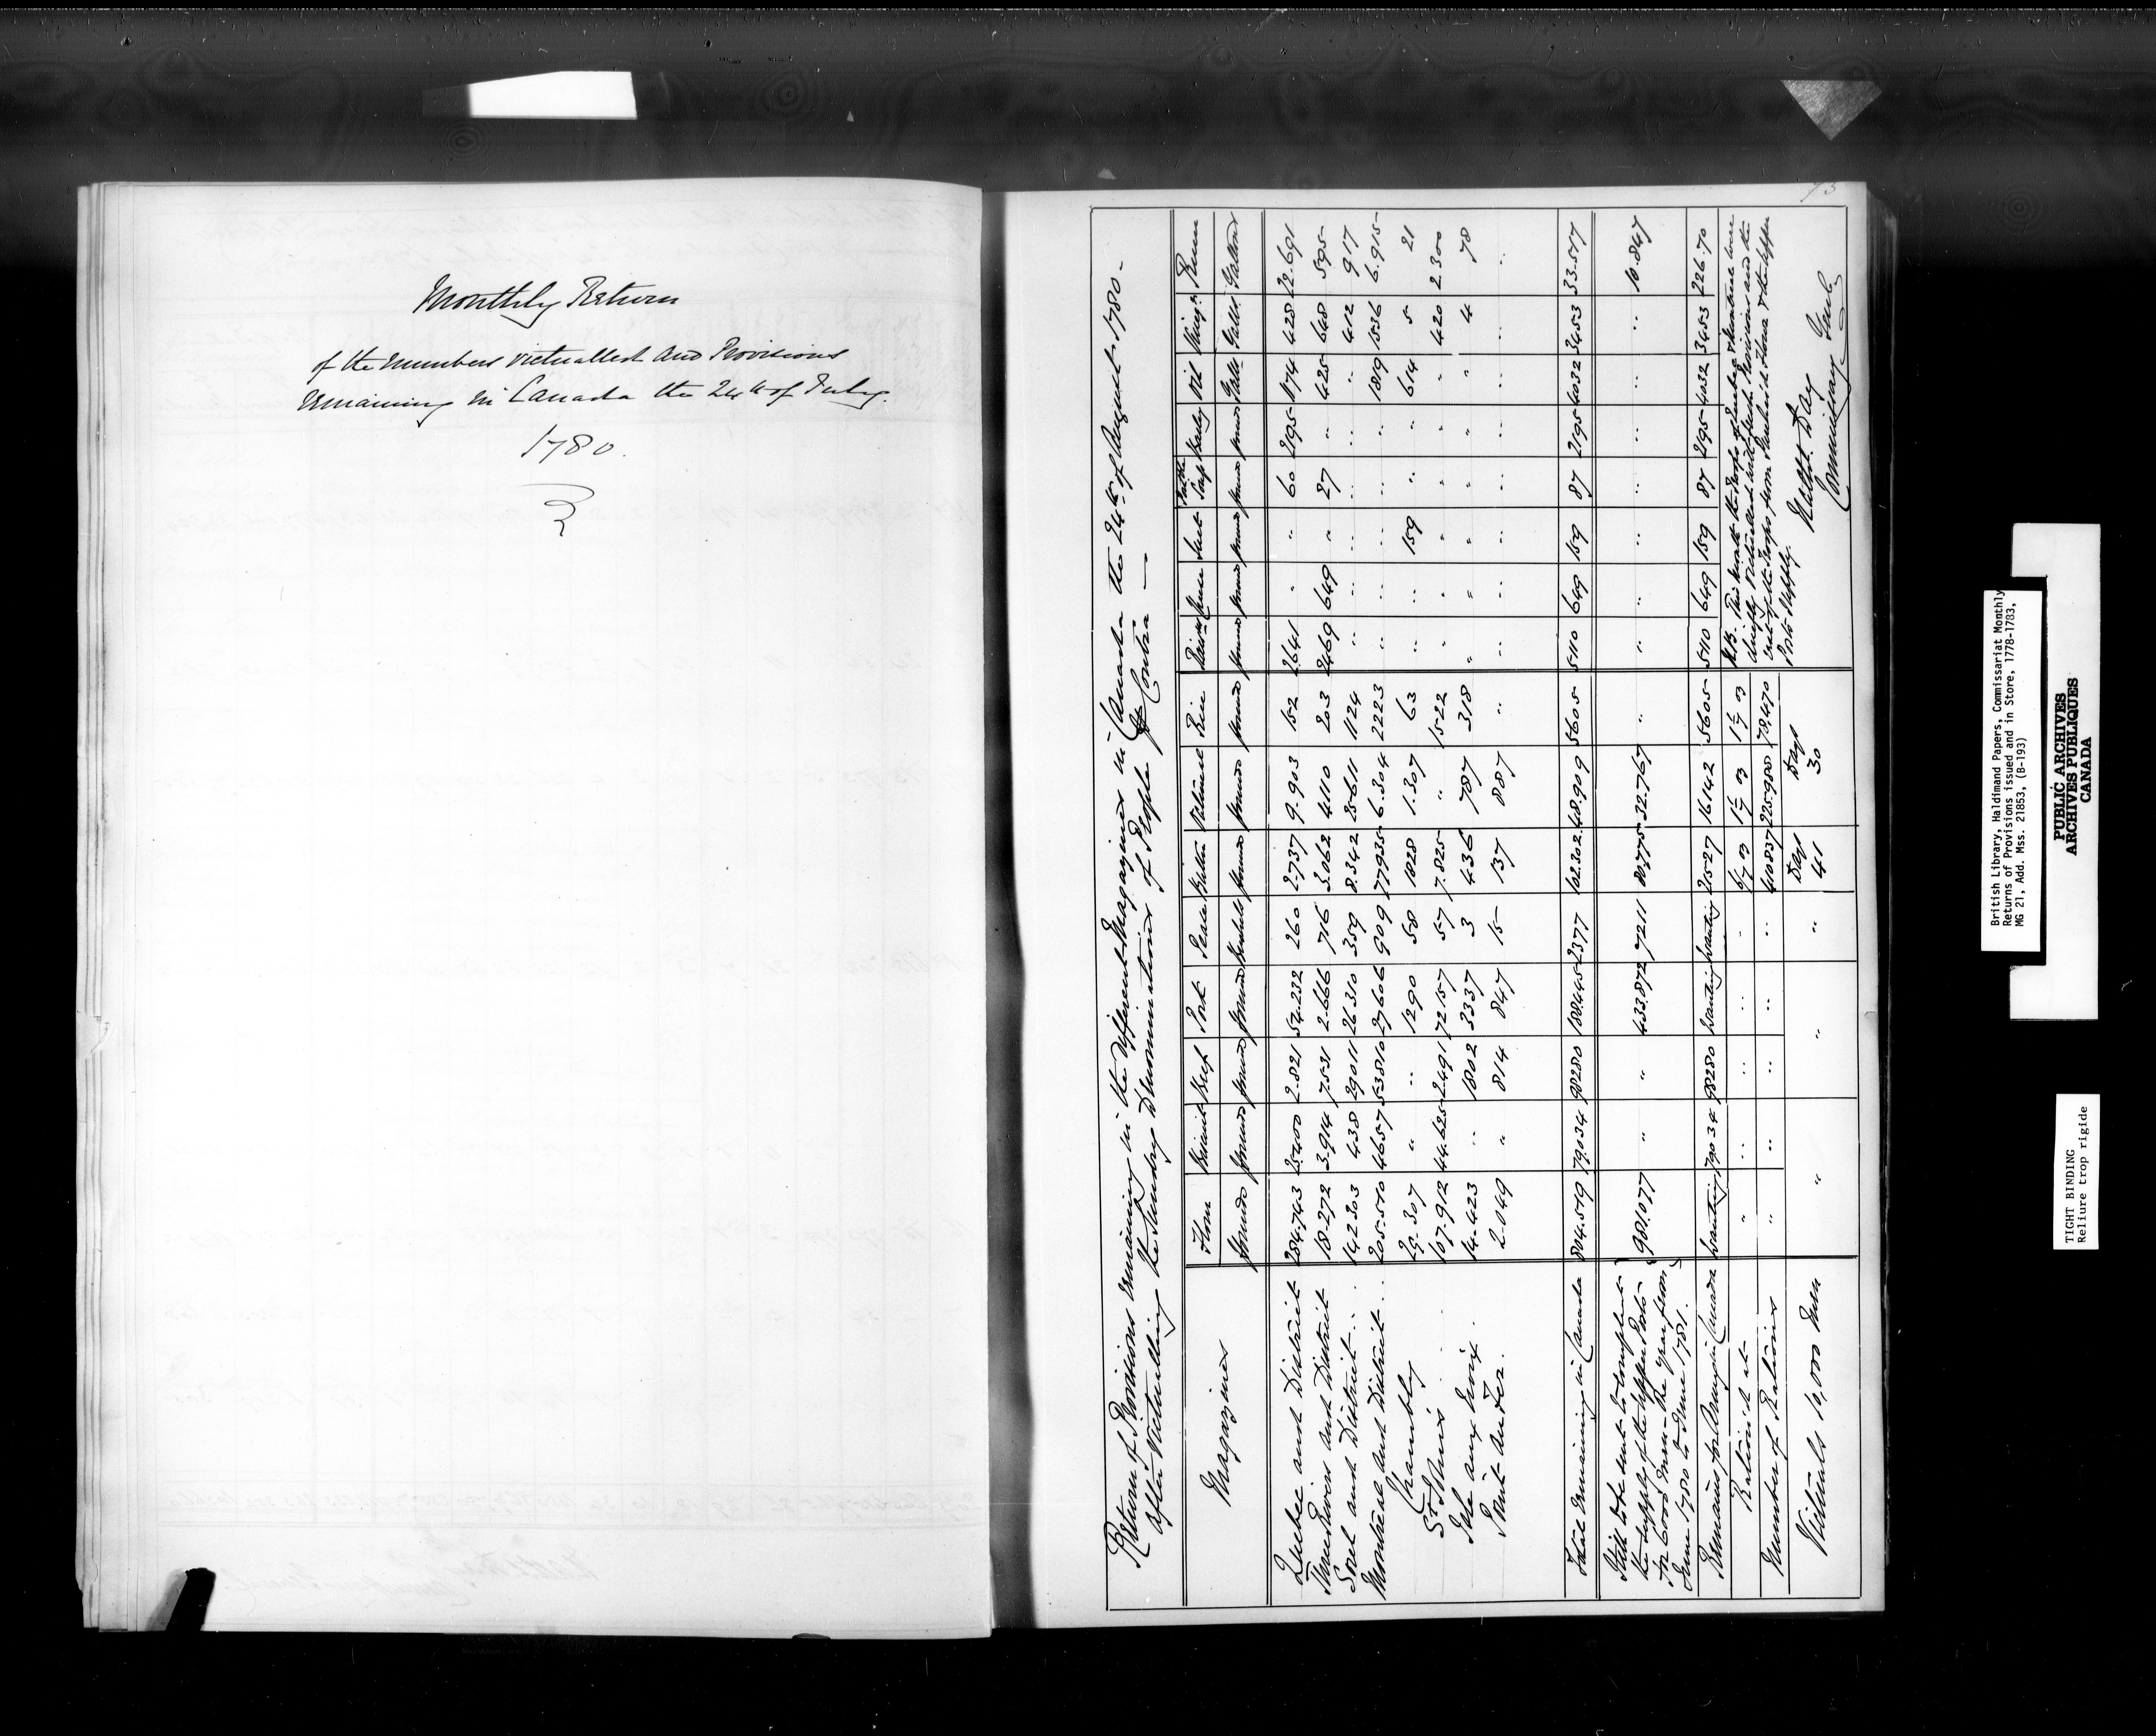 Monthly Return
of the Numbers victualled and Provisions
remaining in Canada the 24th of July.
1780.
73
Return of Provisions remaining in the different Magazines in Canada the 24th of August 1780 -
after Victualling the Sundry Denominations of People Contra —
Magazines | Flour | Biscuit | Beef | Pork | Pease | Butter | Oatmeal | Rice | Raisins | | Suet | Soap | Barley | Oil | Vinegr | Rum
Pounds | Pounds | Pounds | Pounds | Bushels | Pounds | Pounds | Pounds | Pounds | Pounds | Pounds | Pounds | Pounds | Galls | Galls | Gallons
Quebec and District | 284.743 | 25400 | 2.821 | 54.232 | 260 | 2.737 | 9.903 | 152 | 2641 | " | " | 60 | 2195 | 1174 | 428 | 22.691
Three Rivers and District | 18.272 | 3.914 | 7.531 | 2.666 | 716 | 3.062 | 4.110 | 203 | 2469 | 649 | " | 27 | " | 425 | 648 | 595
Sorel and District | 142.303 | 438 | 29011 | 26.310 | 359 | 8.342 | 25.611 | 1124 | " | " | " | " | " | " | 412 | 917
Montreal and District | 205.570 | 4657 | 53810 | 27606 | 909 | 77935 | 6.304 | 2223 | " | " | " | " | " | 1819 | 1536 | 6.915
Chambly | 29.307 | " | " | 1290 | 58 | 1828 | 1.307 | 63 | " | " | 159 | " | " | 614 | 5 | 21
St Johns | 107.912 | 44.625 | 2491 | 72157 | 57 | 7.825 | " | 1522 | " | " | " | " | " | " | 420 | 2.300
Isle aux Noix | 14.423 | " | 1802 | 3337 | 3 | 436 | 787 | 318 | " | " | " | " | " | " | 4 | 78
Point au Fer | 2.049 | " | 814 | 847 | 15 | 137 | 887 | " | " | " | " | " | " | " | " | "
Total remaining in Canada | 804.579 | 79.034 | 98280 | 188.445 | 2377 | 102.302 | 48.909 | 5605 | 5110 | 649 | 159 | 87 | 2195 | 4032 | 3453 | 33.517
Still to be sent to compleat
the supply of the upper Posts
for 6000 Men the year from
June 1780 to June 1781. | 981.077 | " | " | 433.872 | 7211 | 80.775 | 32.767 | " | " | " | " | " | " | " | " | 10.847
Remains for Army in Canada | wanting | 790 34 | 98280 | wanting | wanting | 21527 | 16142 | 5605 | 5110 | 649 | 159 | 87 | 2195 | 4032 | 3453 | 226.70
Rations at | " | " | " | " | " | 6/7 oz | 1 1/7 oz | 1 1/7 oz
Number of Rations | " | " | " | " | " | 410837 | 225.988 | 78.470
Victuals 10,000 Men | " | " | " | " | " | Days 41 | Days 30
N.B. This Month the Posts of Quebec & Montreal were
chiefly Victualled with fresh Provisions and the
rest of the Troops from Quebec in Flour & the upper
Posts supply.
Nathl. Day
Commissary Genl.
British Library, Haldimand Papers, Commissariat Monthly
Returns of Provisions issued and in Store, 1778-1783,
MG 21, Add. Mss. 21853, (B-193)
PUBLIC ARCHIVES
ARCHIVES PUBLIQUES
CANADA
TIGHT BINDING
Reliure trop rigide